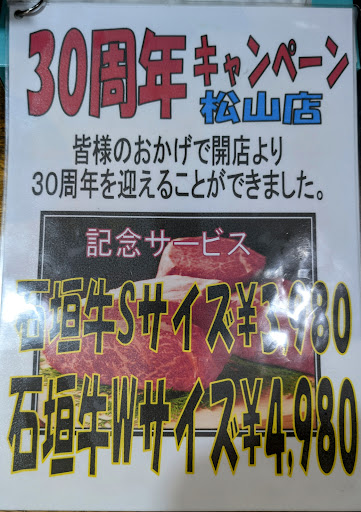 30周年キャンペーン
松山店
皆様のおかげで開店より
30周年を迎えることができました。
記念サービス
石垣牛Sサイズ¥3,980
石垣牛Wサイズ¥4,980